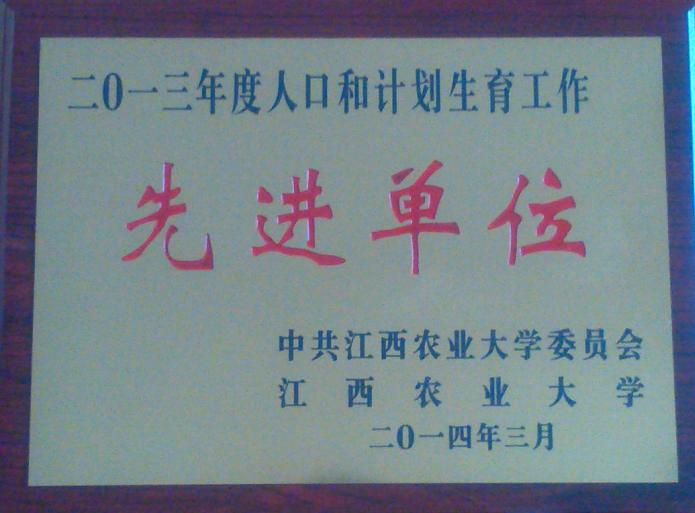 二0一三年度人口和计划生育工作
先进单位
中共江西农业大学委员会
江西农业大学
二0一四年三月